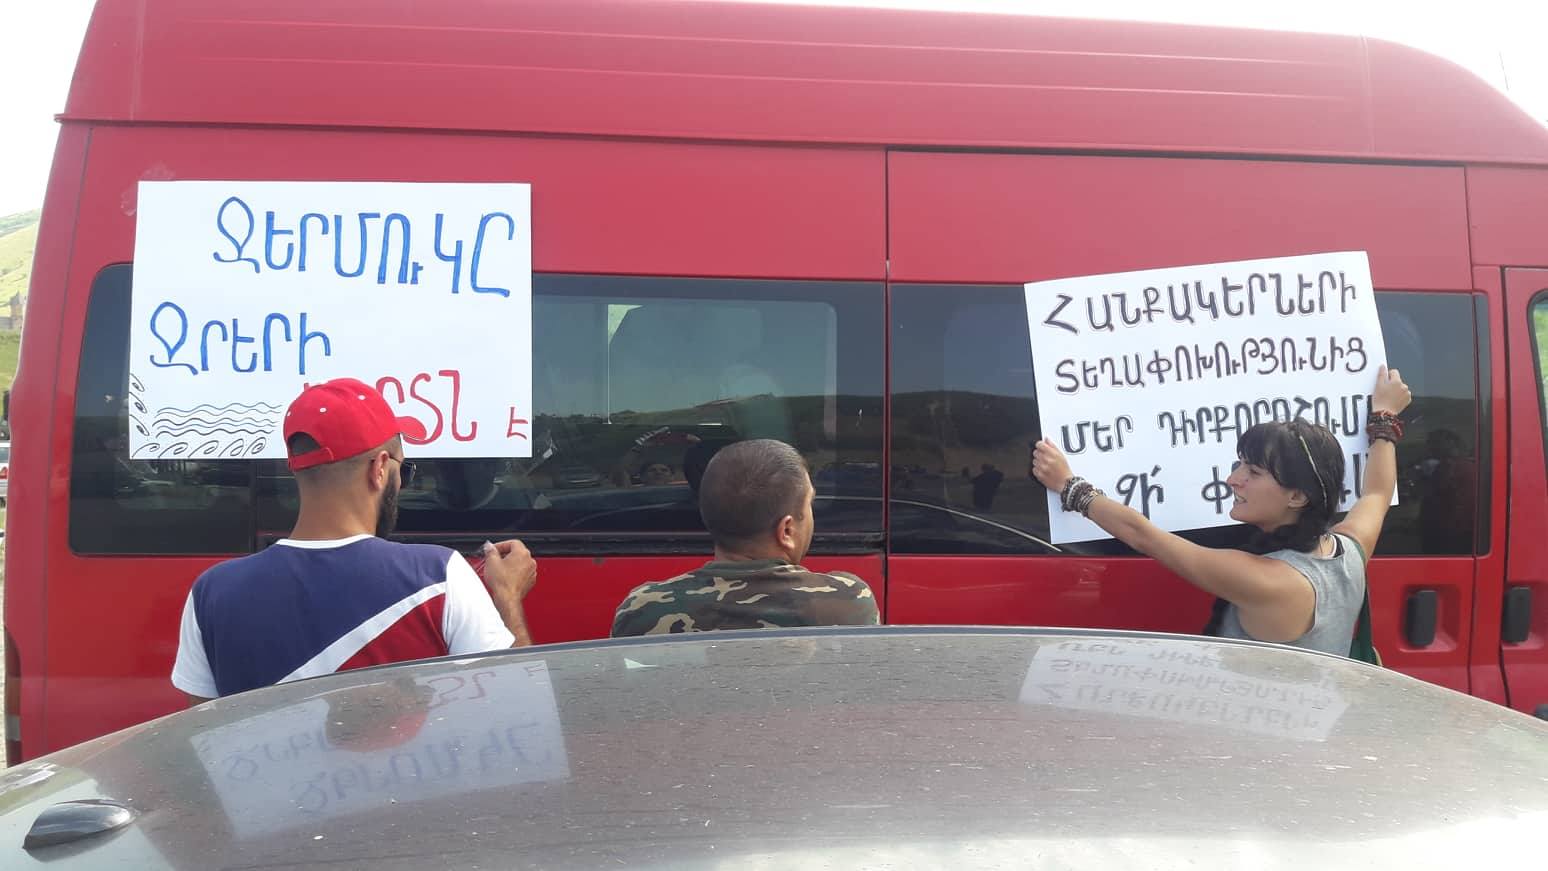 ՋԵՐՄՈՒԿԸ
ՋՐԵՐԻ
Է
ՀԱՆՔԱԿԵՐՆԵՐԻ
ՏԵՂԱՓՈԽՈՒԹՅՈՒՆԻՑ
ՄԵՐ ԴԻՐՔՈՐՈՇՈՒՄ
ՉԻ՛